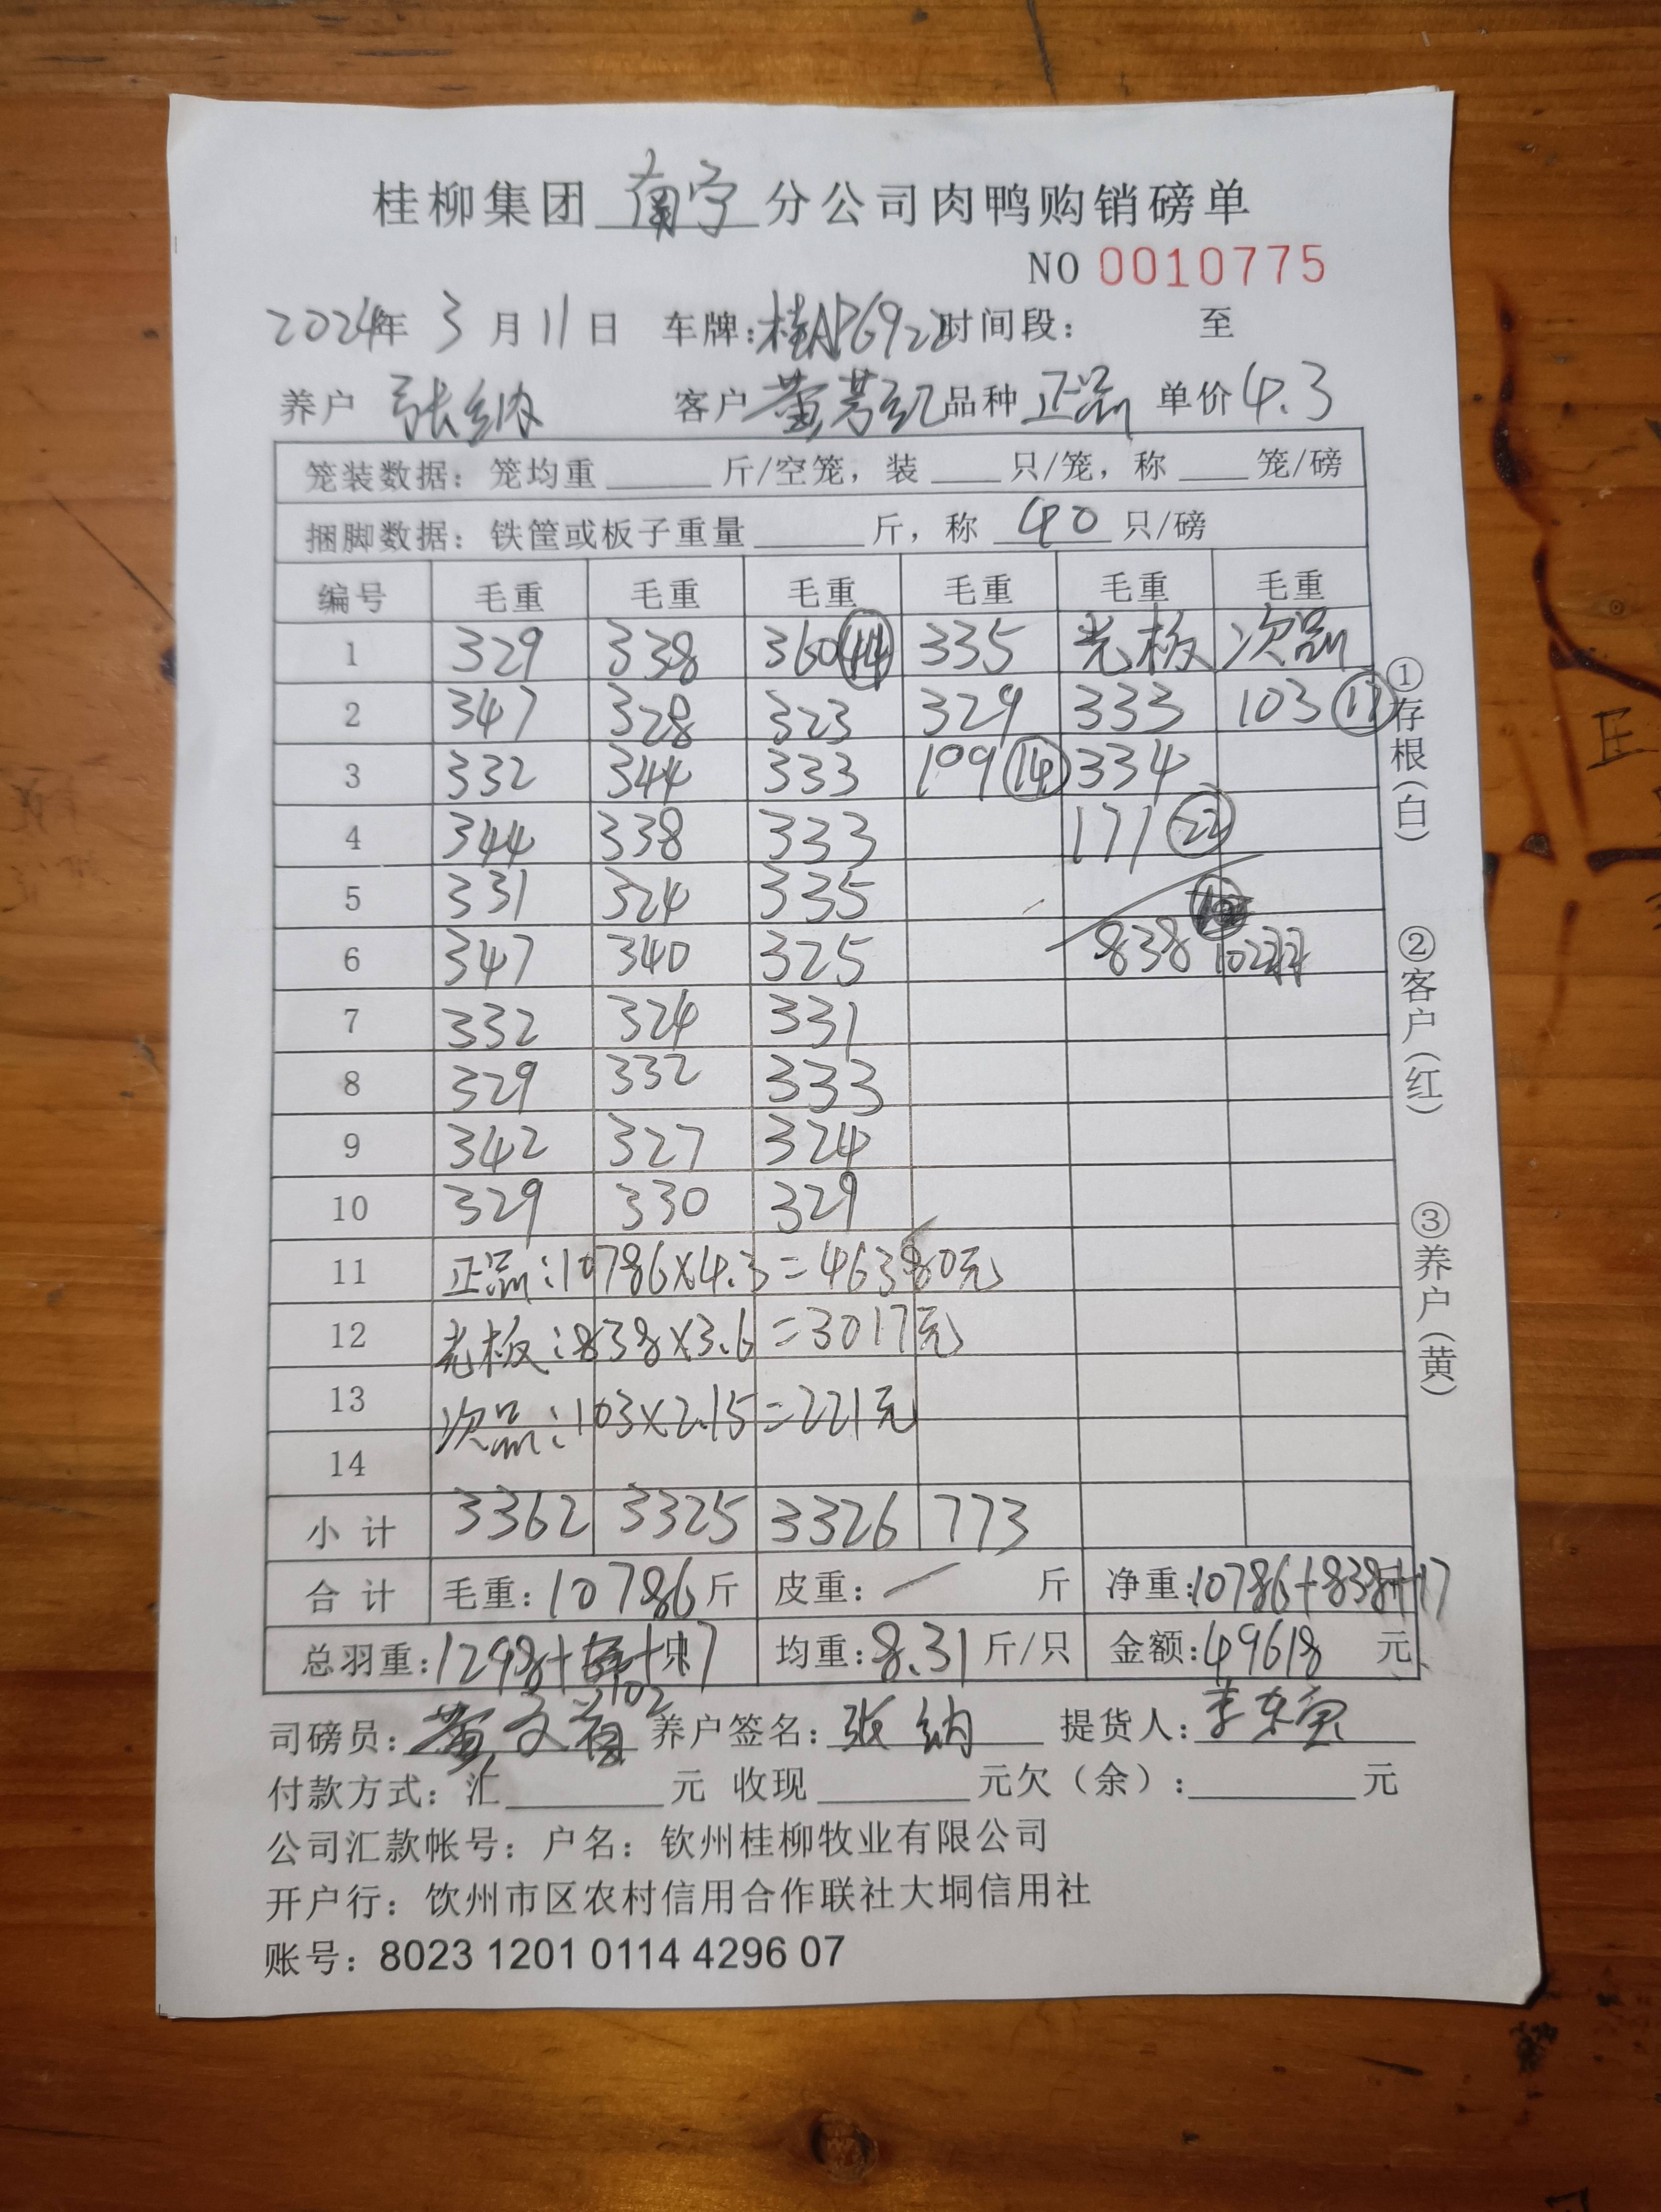 桂柳集团 南宁 分公司肉鸭购销磅单
NO 0010775
2024年 3 月 11 日 车牌:桂AP6922 时间段: 至
养户 张纳 客户 黄芳纪 品种 正品 单价 4.3
笼装数据: 笼均重 斤/空笼, 装 只/笼, 称 笼/磅
捆脚数据: 铁筐或板子重量 斤, 称 40 只/磅
编号 毛重 毛重 毛重 毛重 毛重 毛重
1 329 338 360 44 335 老板 次品
2 347 328 323 329 333 103 17
3 332 344 333 109 14 334
4 344 338 333 171 22
5 331 324 335
6 347 340 325 838 102羽
7 332 324 331
8 329 332 333
9 342 327 324
10 329 330 329
11 正品:10786×4.3=46380元
12 老板:838×3.6=3017元
13 次品:103×2.15=221元
14
小计 3362 3325 3326 773
合计 毛重:10786斤 皮重:/ 斤 净重:10786+838+17
总羽重:1298+ +17 只 均重:8.31斤/只 金额:49618 元
102
司磅员: 黄文 养户签名: 张纳 提货人: 李东
付款方式: 汇 元 收现 元欠(余): 元
公司汇款帐号: 户名: 钦州桂柳牧业有限公司
开户行: 饮州市区农村信用合作联社大垌信用社
账号: 8023 1201 0114 4296 07
①存根(白)
②客户(红)
③养户(黄)